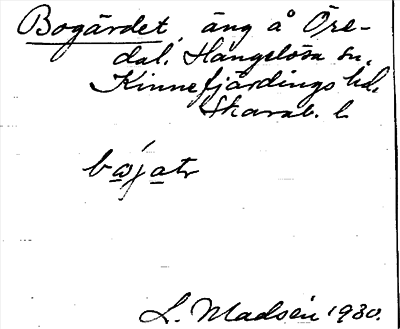 Bogärdet, äng å Öre-
dal. Hangelösa sn,
Kinnefjärdings hd,
Skarab. l.
bo̲ja̲tr
L. Madsén 1930.